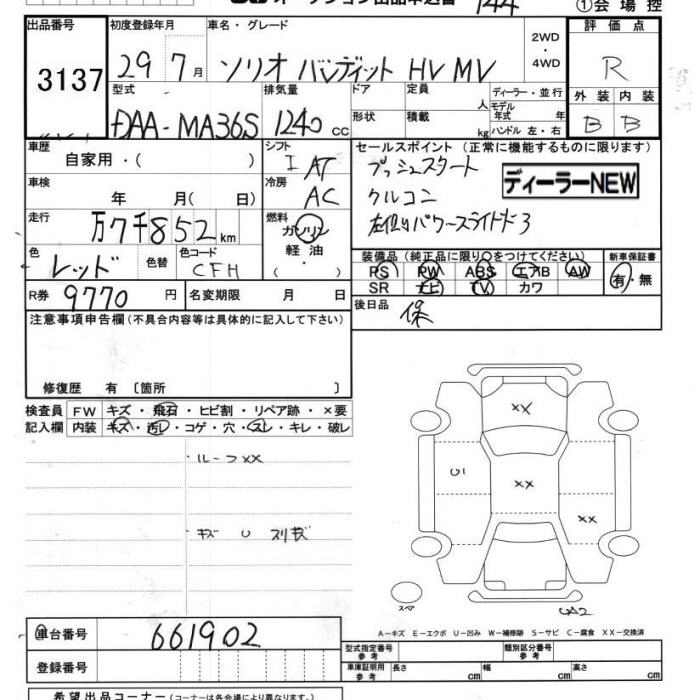 ①会場控
出品番号 初度登録年月 車名・グレード 2WD・4WD 評価点
3137 29年7月 ソリオ バンディット HV MV R
型式 排気量 ドア 定員 人 ディーラー・並行 外装 内装
DAA-MA36S 1240cc 形状 積載 kg モデル年式 年 ハンドル 左・右 B B
車歴 シフト セールスポイント (正常に機能するものに限ります)
自家用・( ) I AT プッシュスタート
車検 冷房 クルコン ディーラーNEW
年 月( 日) AC 左側パワースライドドア
走行 燃料
万7千852km ガソリン
色 色替 色コード 軽油・( ) 装備品(純正品に限り○をつけてください) 新車保証書
レッド CFH PS PW ABS エアB AW 有・無
SR ナビ TV カワ
R券 9770円 名変期限 月 日 後日品 保
注意事項申告欄(不具合内容等は具体的に記入して下さい)
修復歴 有 〔箇所 〕
検査員 FW キズ・飛石・ヒビ割・リペア跡・×要
記入欄 内装 キズ・汚レ・コゲ・穴・スレ・キレ・破レ
・ルーフXX
・キズ U スリキズ
XX
U1
XX
XX
スペア
A-キズ E-エクボ U-凹み W-補修跡 S-サビ C-腐食 XX-交換済
車台番号 661902
型式指定番号参考 類別区分番号参考
登録番号
車庫証明用参考 長さ cm 幅 cm 高さ cm
希望出品コーナー(コーナーは各会場により異なります。)